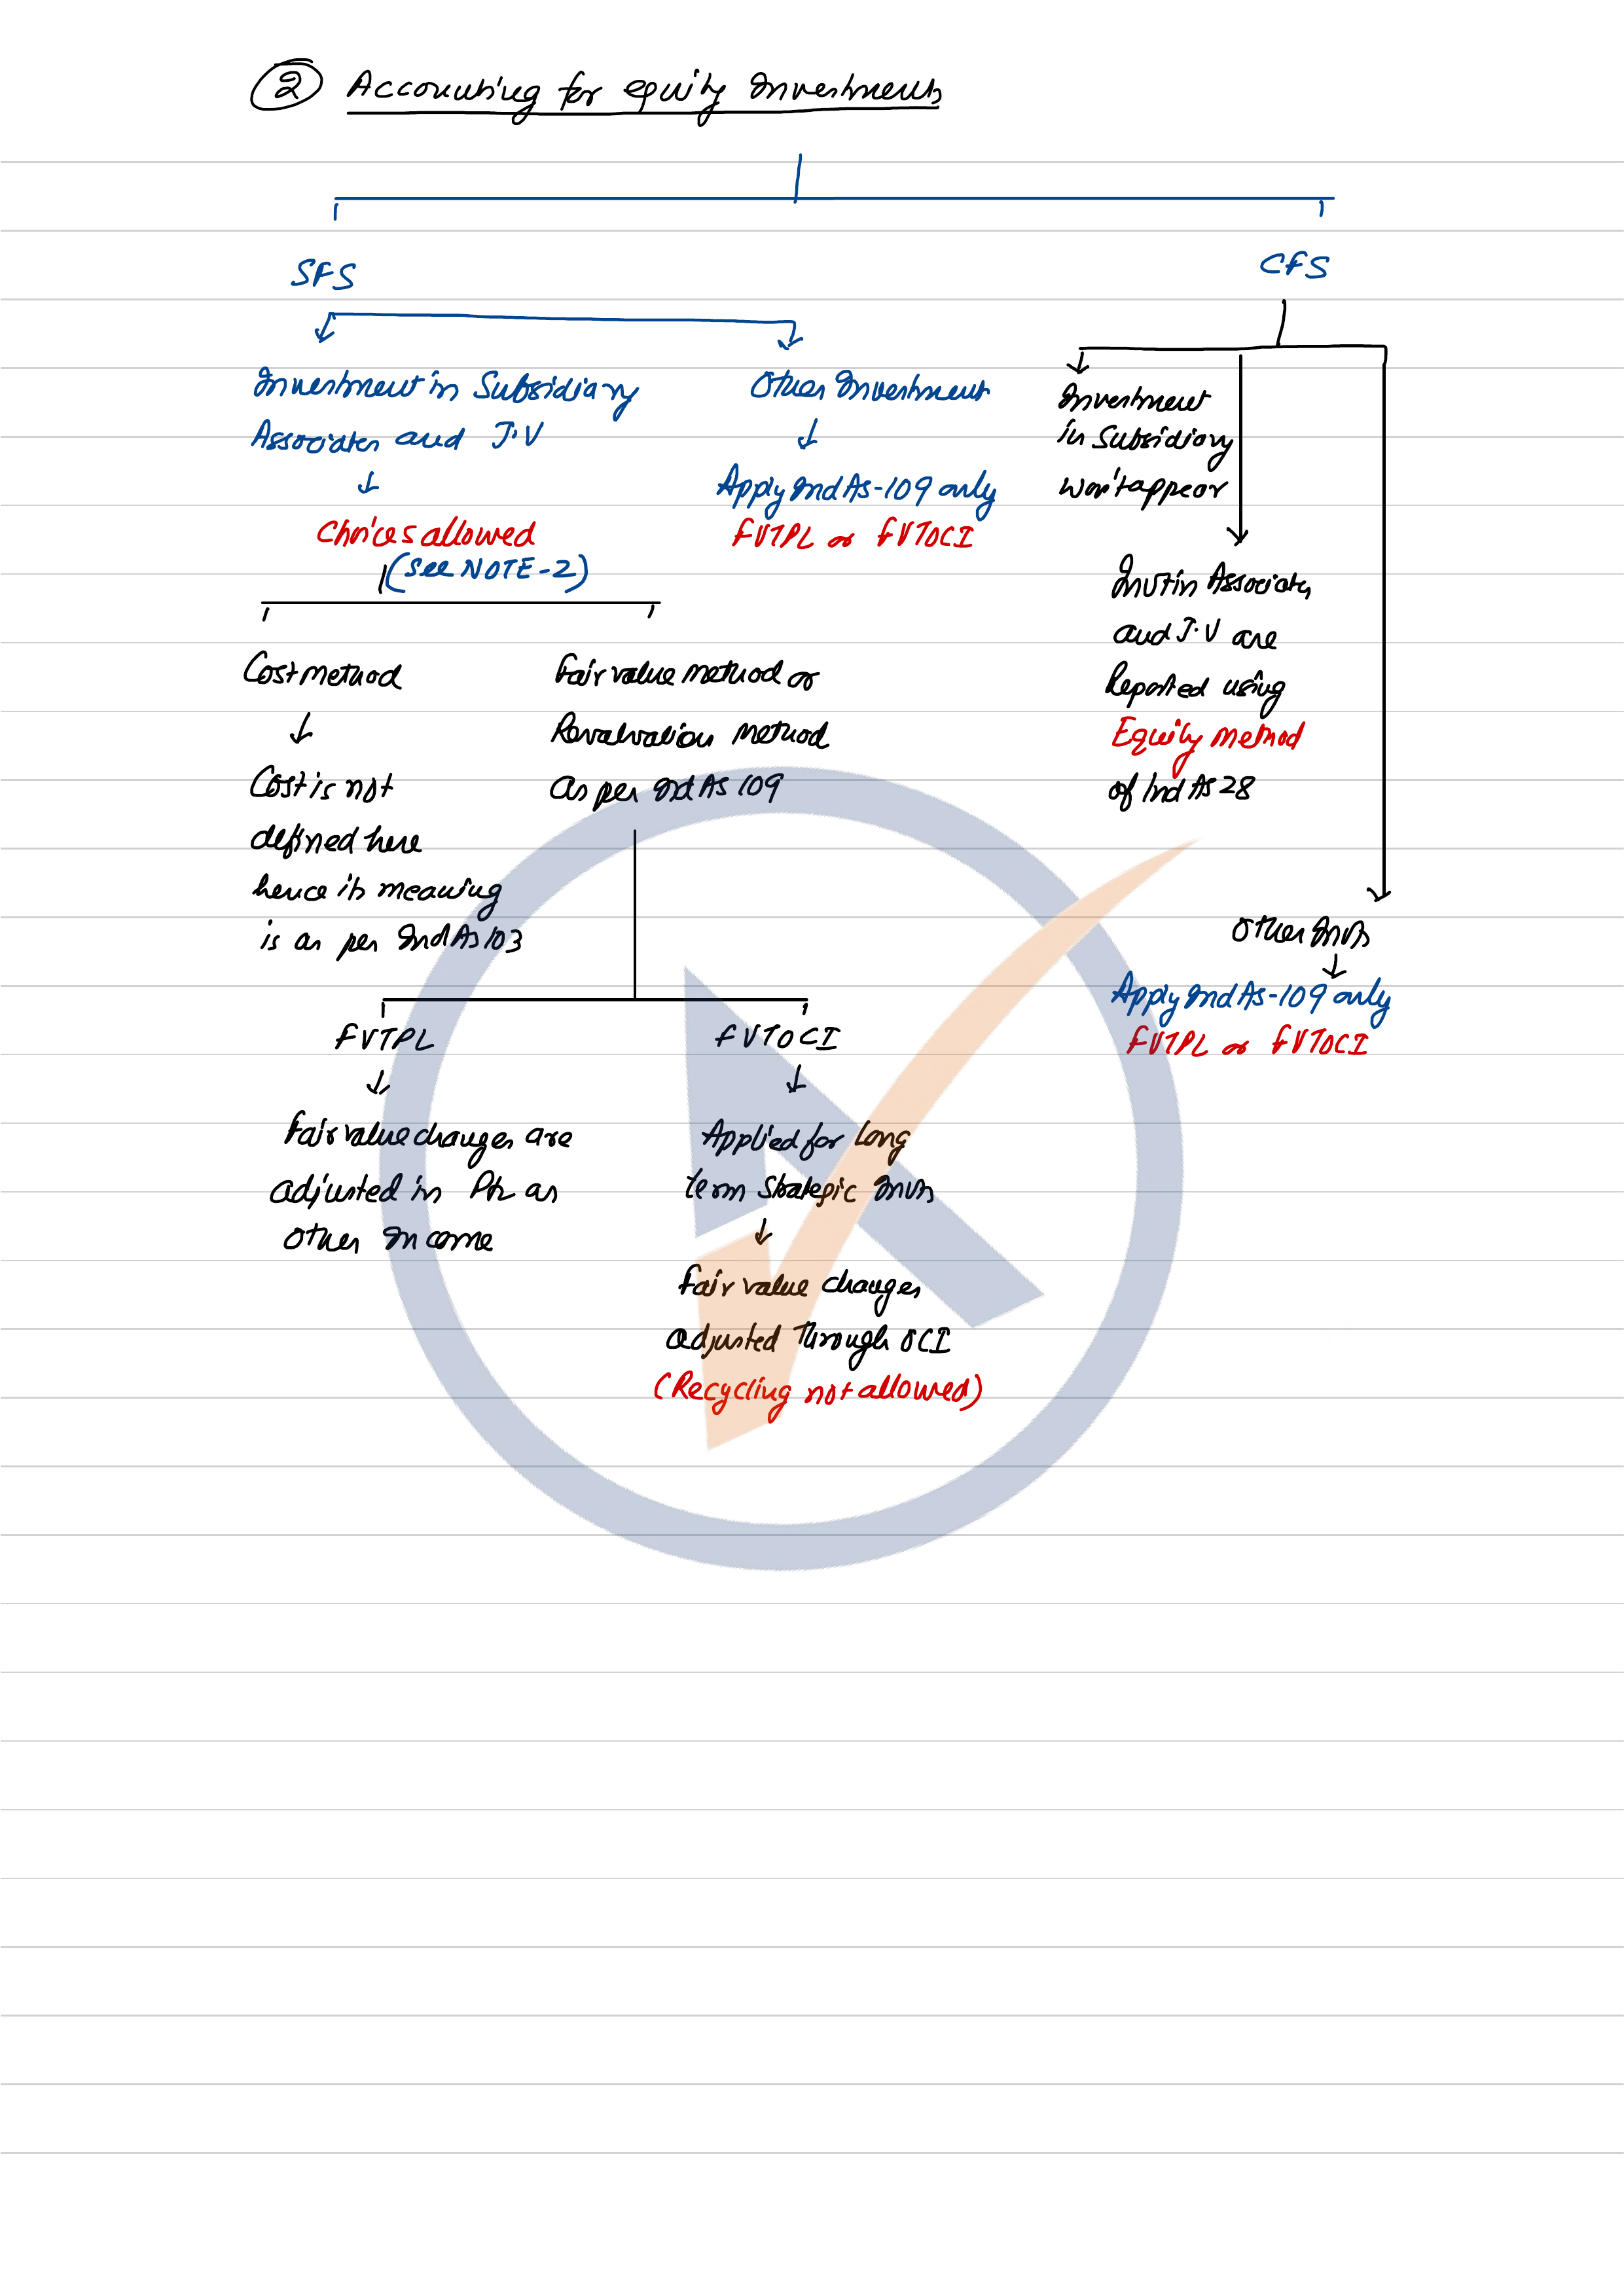 ② Accounting for equity Investments
SFS
CFS
Investment in Subsidiary
Associates and J.V
↓
Choices allowed
(see NOTE-2)
Other Investment
↓
Apply Ind As-109 only
FVTPL or FVTOCI
Investment
in Subsidiary
won't appear
Invt in Associates
and J.V are
Reported using
Equity method
of Ind AS 28
Cost method
↓
Cost is not
defined here
hence its meaning
is as per Ind As 103
Fair value method or
Revaluation method
as per Ind AS 109
Other Invts
↓
Apply Ind As-109 only
FVTPL or FVTOCI
FVTPL
↓
Fair value changes are
adjusted in P/L as
other Income
FVTOCI
↓
Applied for Long
term Strategic Invts
↓
Fair value changes
adjusted Through OCI
(Recycling not allowed)